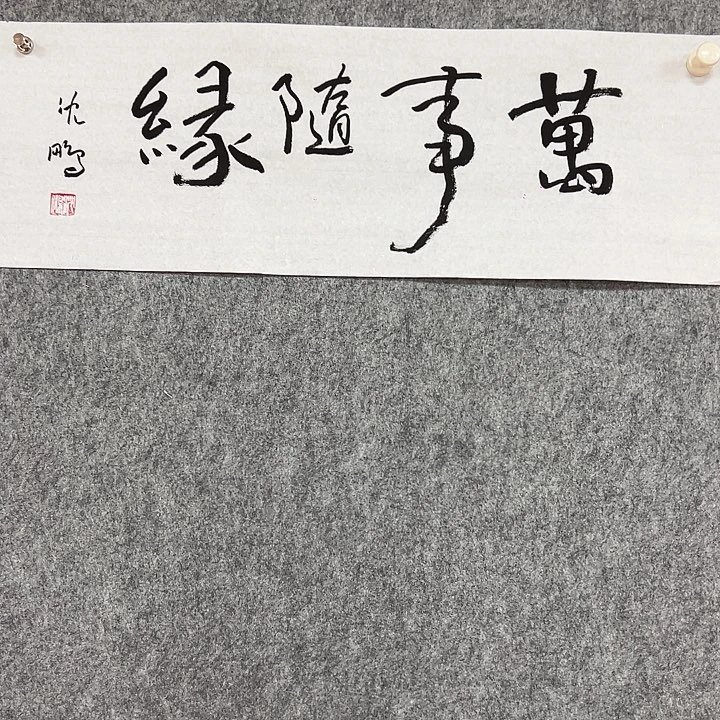 萬事隨緣
沈鵬